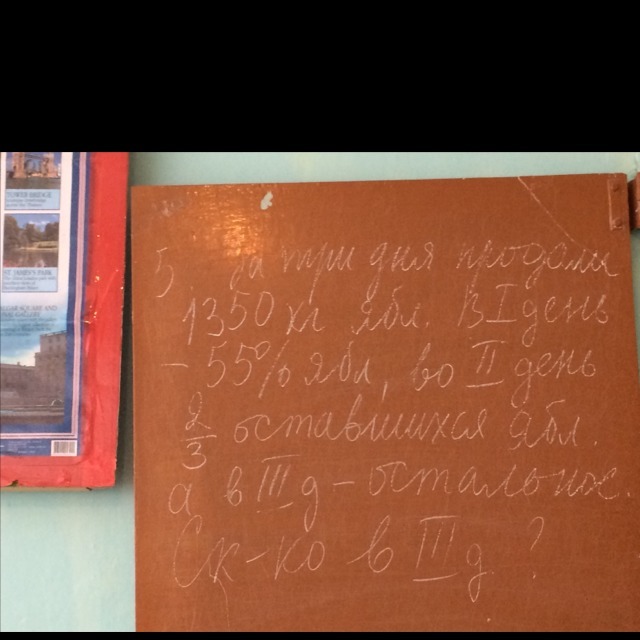 TOWER BRIDGE
ST. JAMES'S PARK
5 За три дня продали
1350 кг ябл. В I день
- 55% ябл, во II день
2/3 оставшихся ябл.
а в III д - остальное.
Ск-ко в III д?